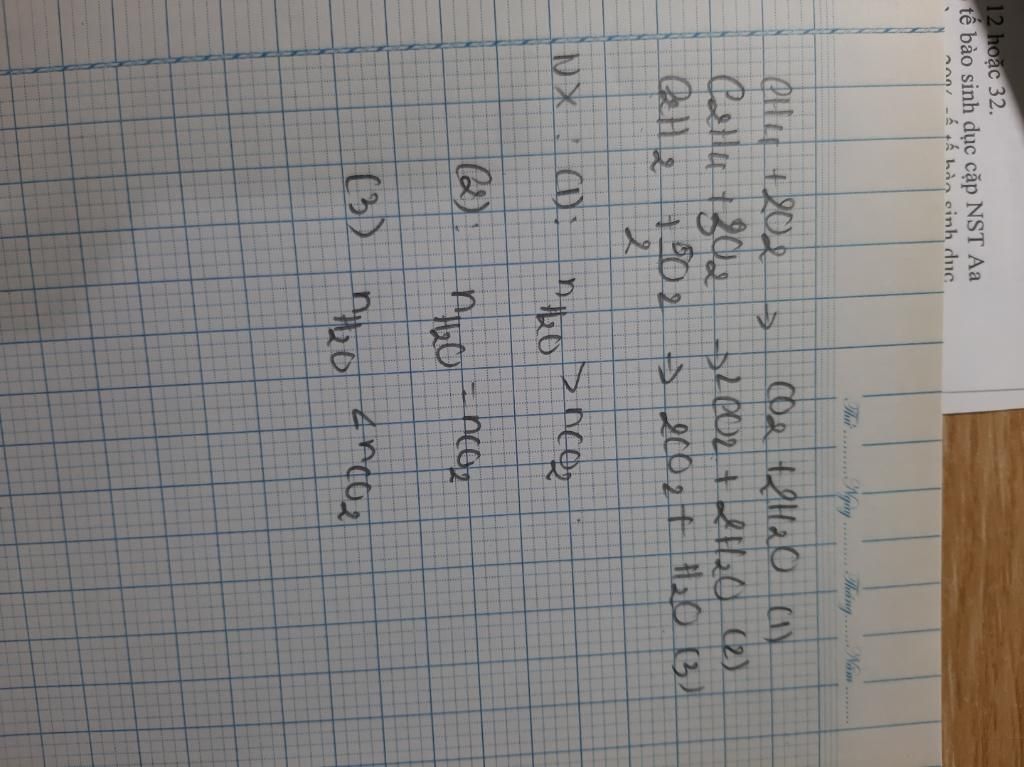 12 hoặc 32.
tế bào sinh dục cặp NST Aa
Thứ ........ Ngày ........ Tháng ...... Năm ........
CH4 + 2O2 → CO2 + 2H2O (1)
C2H4 + 3O2 → 2CO2 + 2H2O (2)
C2H2 + 5/2 O2 → 2CO2 + H2O (3)
NX : (1): nH2O > nCO2
(2): nH2O = nCO2
(3) nH2O < nCO2